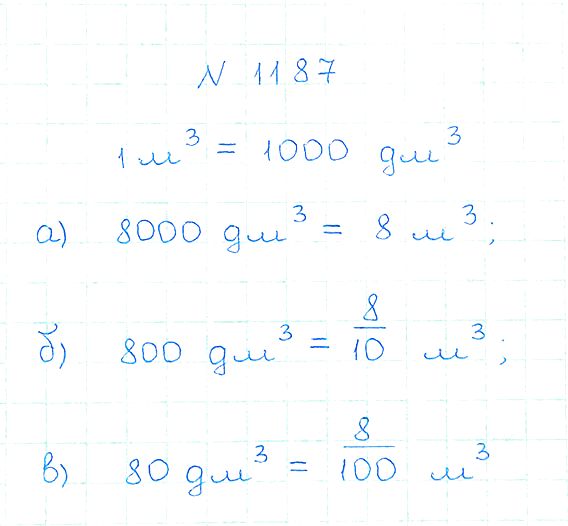 N 1187
1 м³ = 1000 дм³
а) 8000 дм³ = 8 м³;
б) 800 дм³ = 8/10 м³;
в) 80 дм³ = 8/100 м³